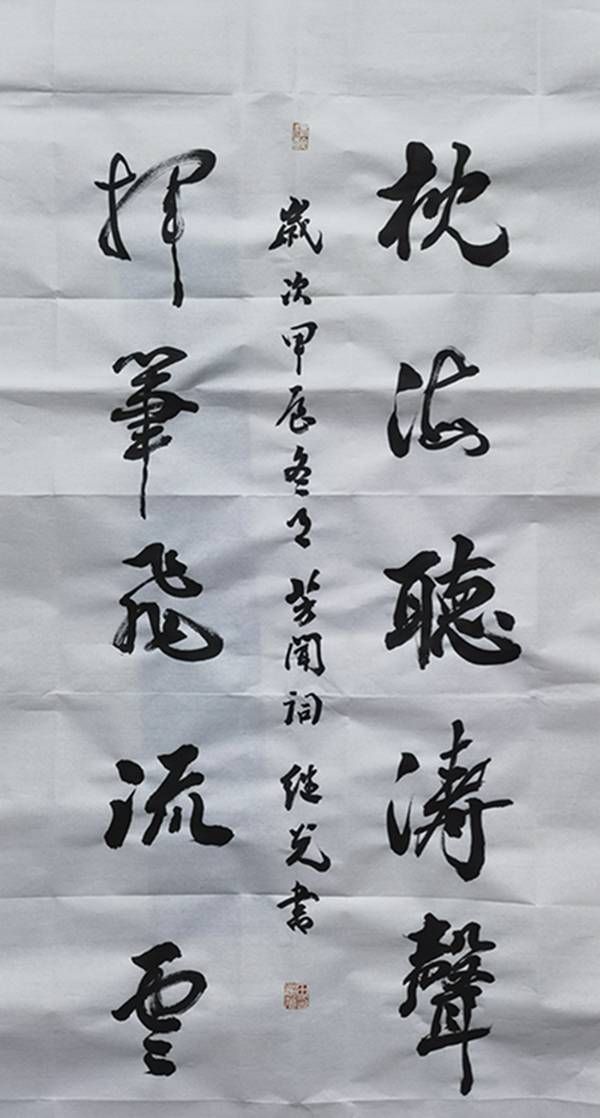 枕海聽濤聲
揮筆飛流雲
歲次甲辰冬月芳聞詞继光書